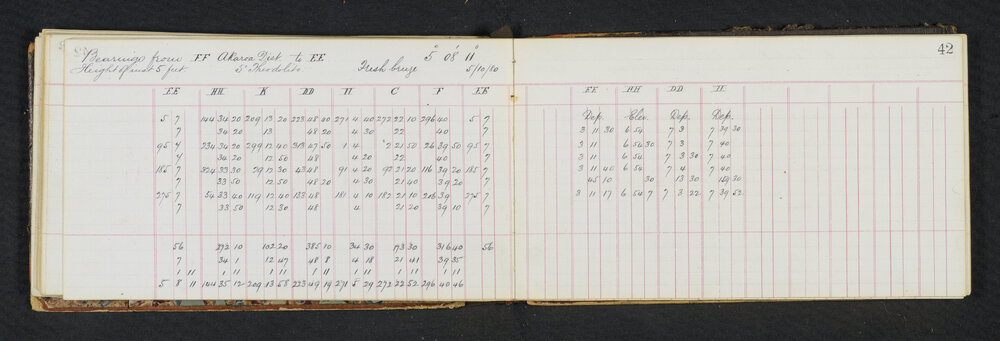 Bearings from FF Akaroa Dist to EE 5° 08' 11" 42
Height of inst 5 feet 5" Theodolite Fresh breeze 5/10/80
EE HH K DD II C F EE EE HH DD II
Dep. Elev. Dep. Dep.
5 7 144 34 20 209 13 20 223 48 40 271 4 40 272 22 10 296 40 5 7 3 11 30 6 54 7 3 7 39 30
7 34 20 13 48 20 4 30 22 40 7
95 7 234 34 20 299 12 40 313 47 50 1 4 2 21 50 26 39 50 95 7 3 11 6 54 30 7 3 7 40
7 34 20 12 50 48 4 20 22 40 7 3 11 6 54 7 3 30 7 40
185 7 324 33 30 29 12 30 43 48 91 4 20 92 21 20 116 39 20 185 7 3 11 40 6 54 7 4 7 40
7 33 50 12 50 48 20 4 30 21 40 39 20 7 45 10 30 13 30 159 30
275 7 54 33 40 119 12 40 133 48 181 4 10 182 21 10 206 39 275 7 3 11 17 6 54 7 7 3 22 7 39 52
7 33 50 12 30 48 4 21 20 39 10 7
56 272 10 102 20 385 10 34 30 173 30 316 40 56
7 34 1 12 47 48 8 4 18 21 41 39 35
1 11 1 11 1 11 1 11 1 11 1 11 1 11
5 8 11 144 35 12 209 13 58 223 49 19 271 5 29 272 22 52 296 40 46